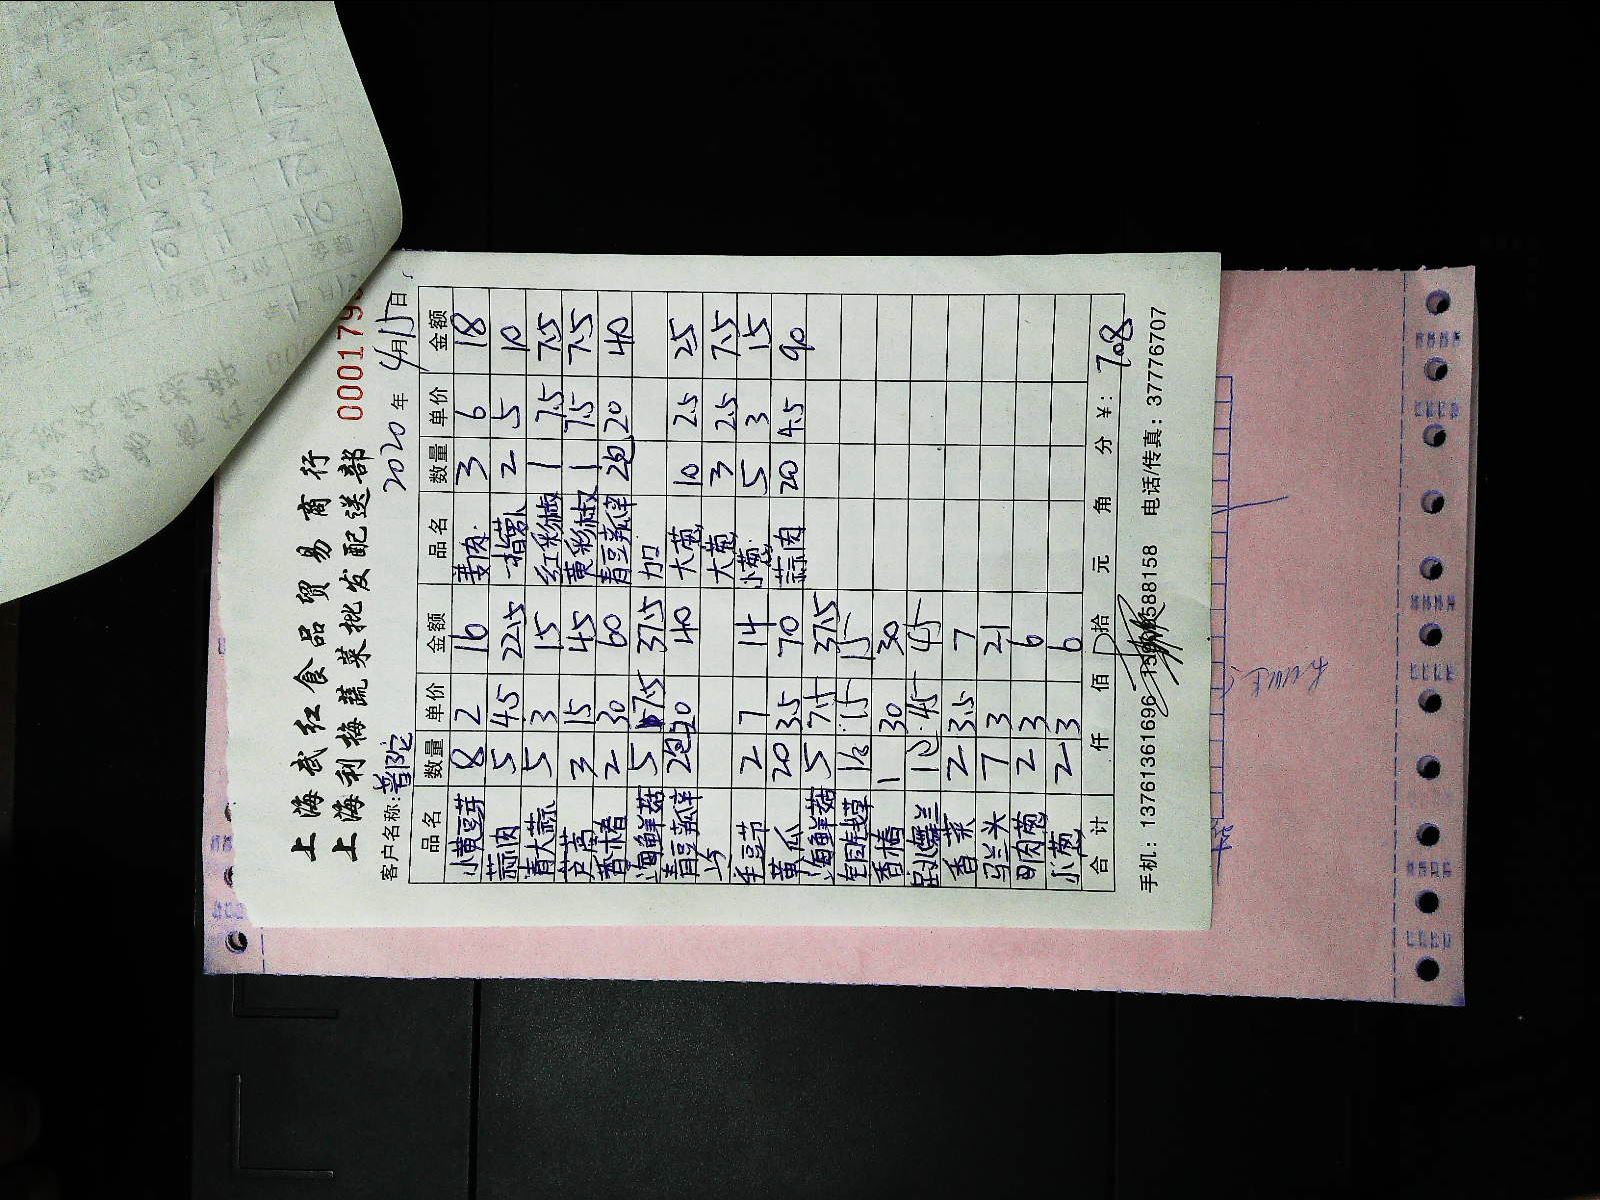 上海武红食品贸易商行
上海利梅蔬菜批发配送部
000179
客户名称:普陀 2020年4月15日
品名 数量 单价 金额 品名 数量 单价 金额
小黄豆芽 8 2 16 姜肉 3 6 18
蒜肉 5 4.5 22.5 2 5 10
青大蒜 5 3 15 红彩椒 1 7.5 7.5
芦蒿 3 15 45 黄彩椒 1 7.5 7.5
香椿 2 30 60 青豆瓣 2包 20 40
海鲜菇 5 7.5 37.5 加
青豆瓣 2包 20 40 大葱 10 2.5 25
大葱 3 2.5 7.5
毛豆节 2 7 14 小葱 5 3 15
黄瓜 20 3.5 70 蒜肉 20 4.5 90
海鲜菇 5 7.5 37.5
15 15
香椿 1 30 30
45 45
香菜 2 3.5 7
马兰头 7 3 21
2 3 6
小葱 2 3 6
合计 仟 佰 拾 元 角 分 ¥: 708
手机: 13761361696 588158 电话/传真: 37776707